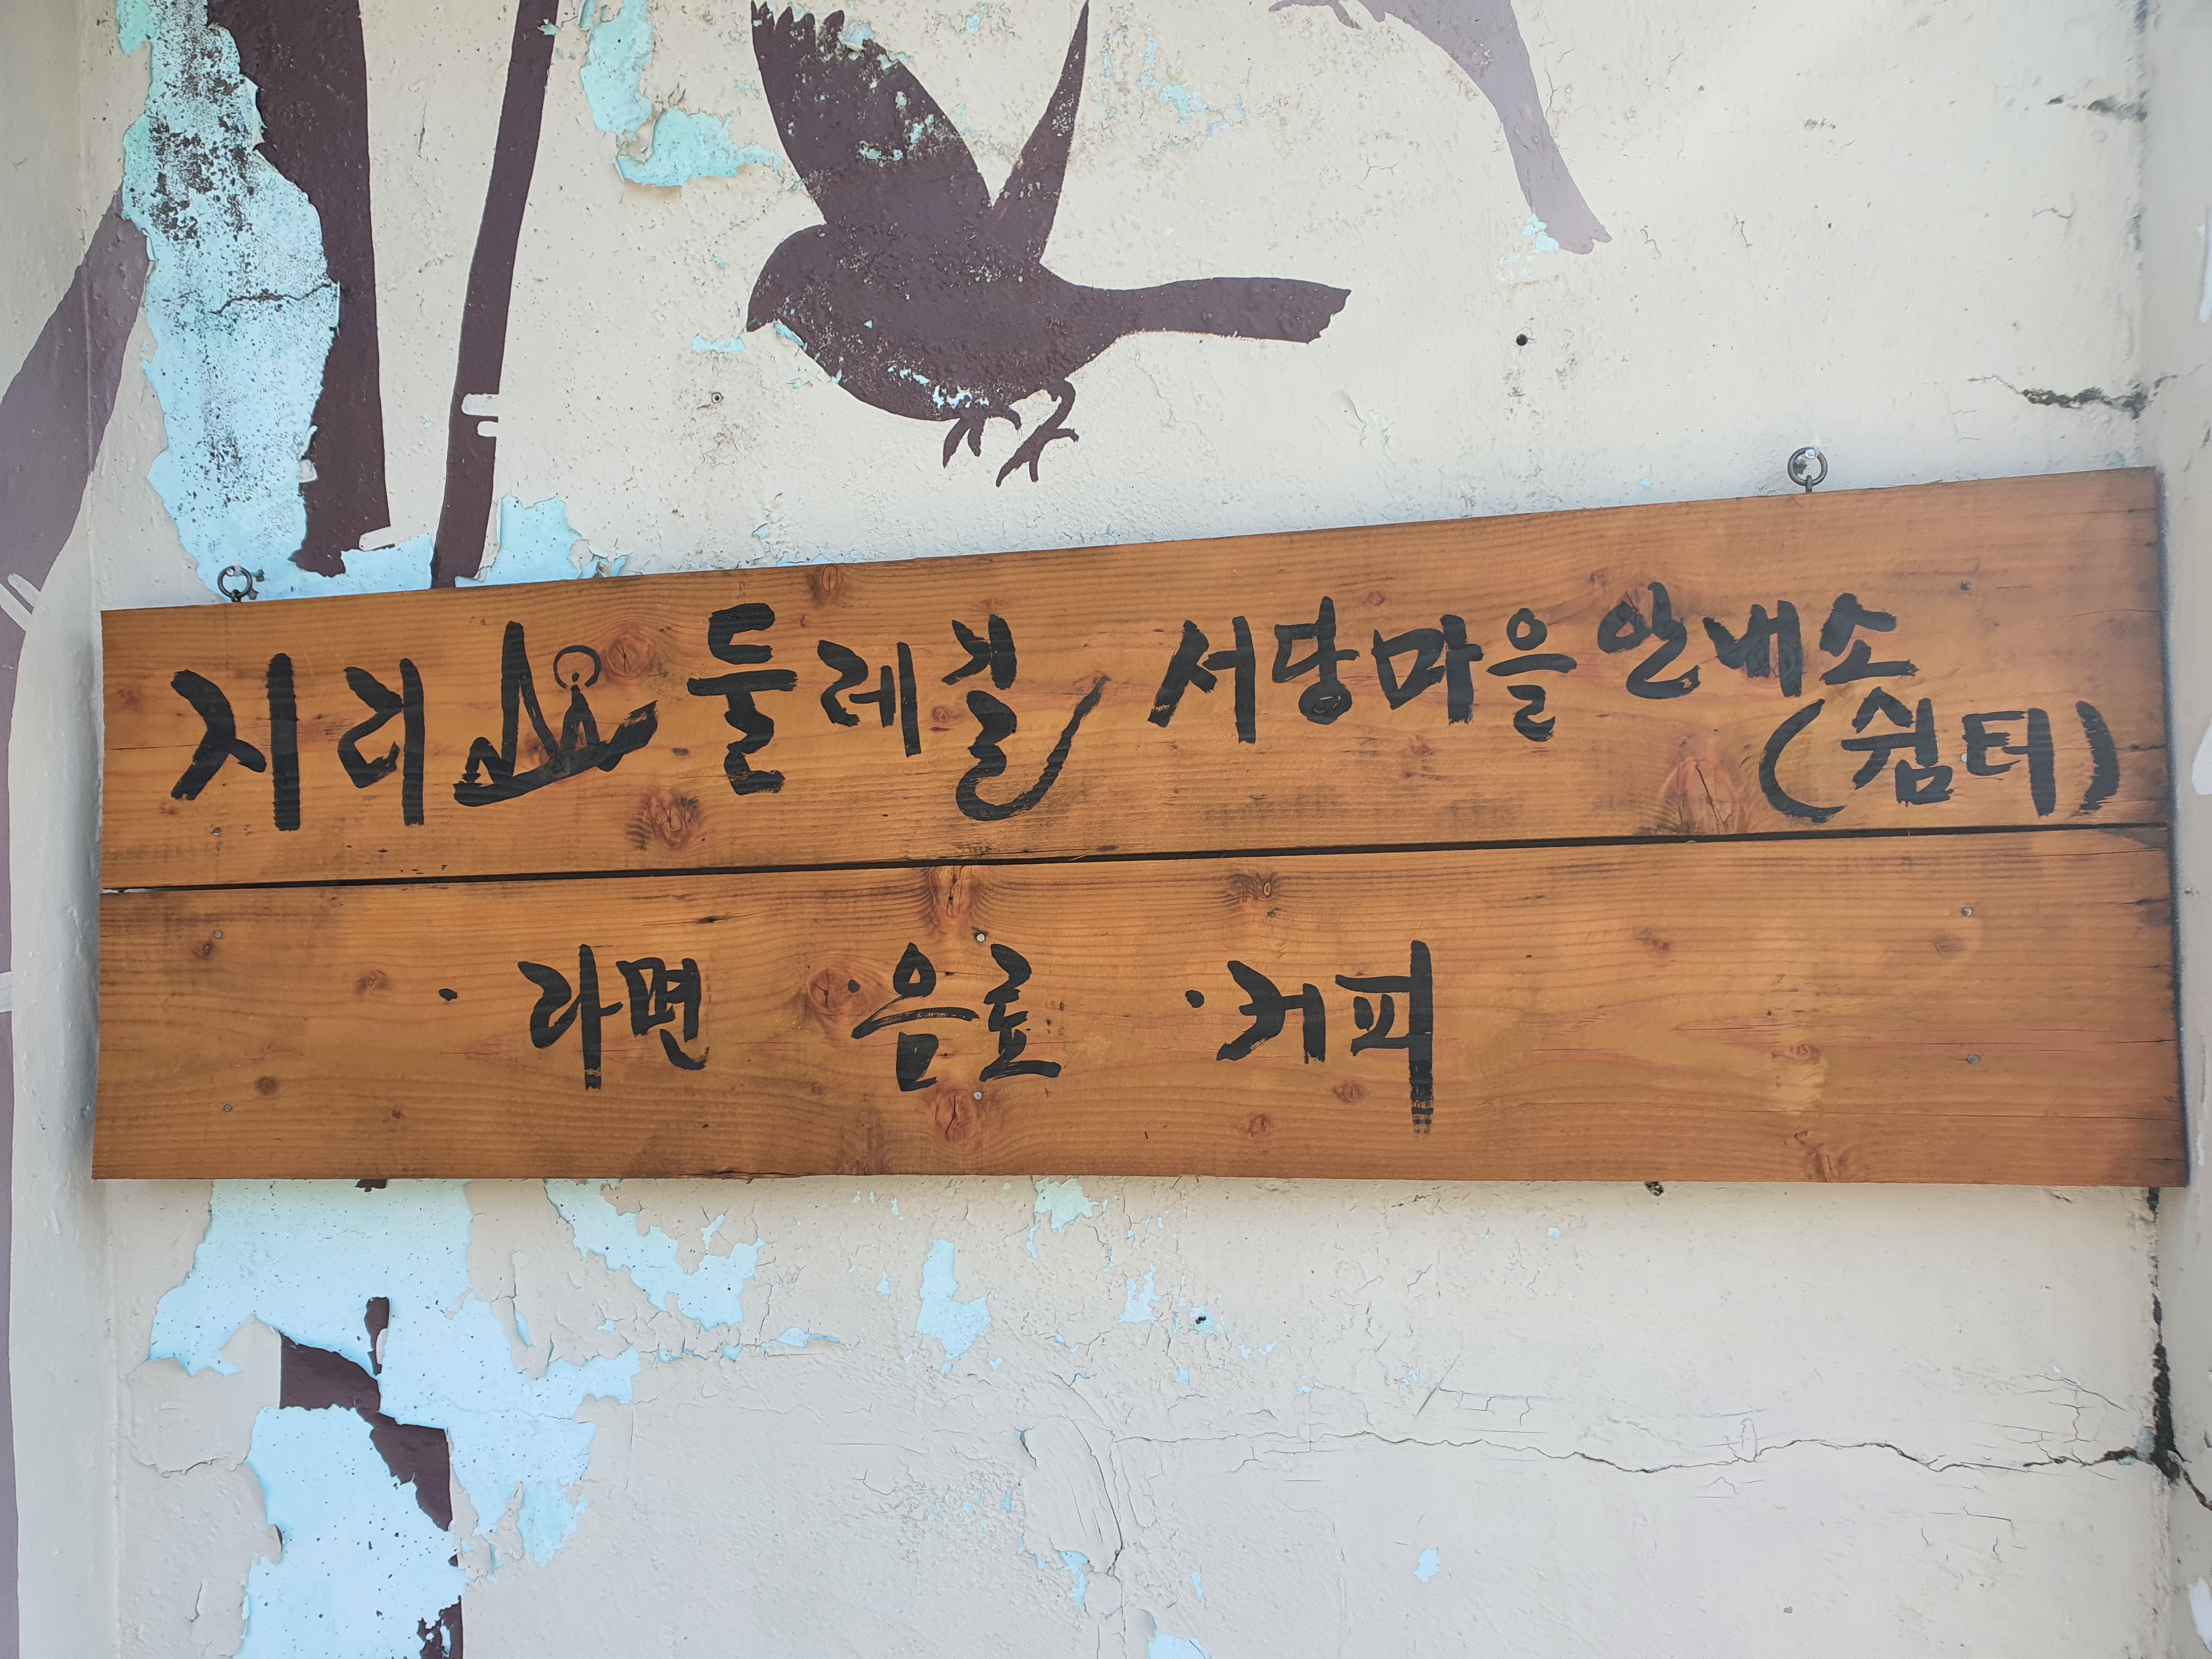 지리산 둘레길 서당마을 안내소
(쉼터)
· 라면 · 음료 · 커피